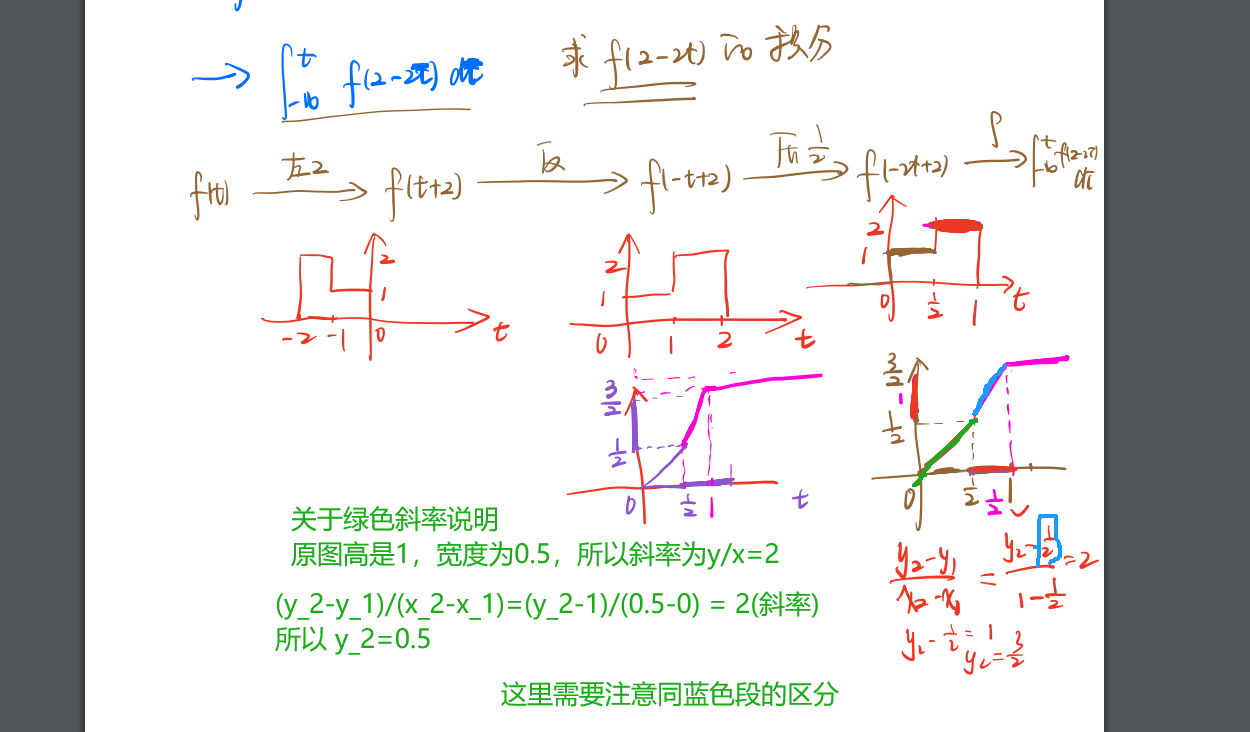 → ∫_{-∞}^{t} f(2-2τ) dτ 求 f(2-2t) 的积分
f(t) 左2 → f(t+2) 反 → f(-t+2) 压 1/2 → f(-2t+2) ∫ → ∫_{-∞}^{t} f(2-2τ) dτ
2
1
-2 -1 0 t
2
1
0 1 2 t
2
1
0 1/2 1 t
3/2
1/2
0 1/2 1 t
3/2
1
1/2
0 1/2 1/2 1
关于绿色斜率说明
原图高是1，宽度为0.5，所以斜率为y/x=2
(y_2-y_1)/(x_2-x_1)=(y_2-1)/(0.5-0) = 2(斜率)
所以 y_2=0.5
(y2-y1)/(x2-x1) = (y2-1/2)/(1-1/2) = 2
y2-1/2=1
y2=3/2
这里需要注意同蓝色段的区分